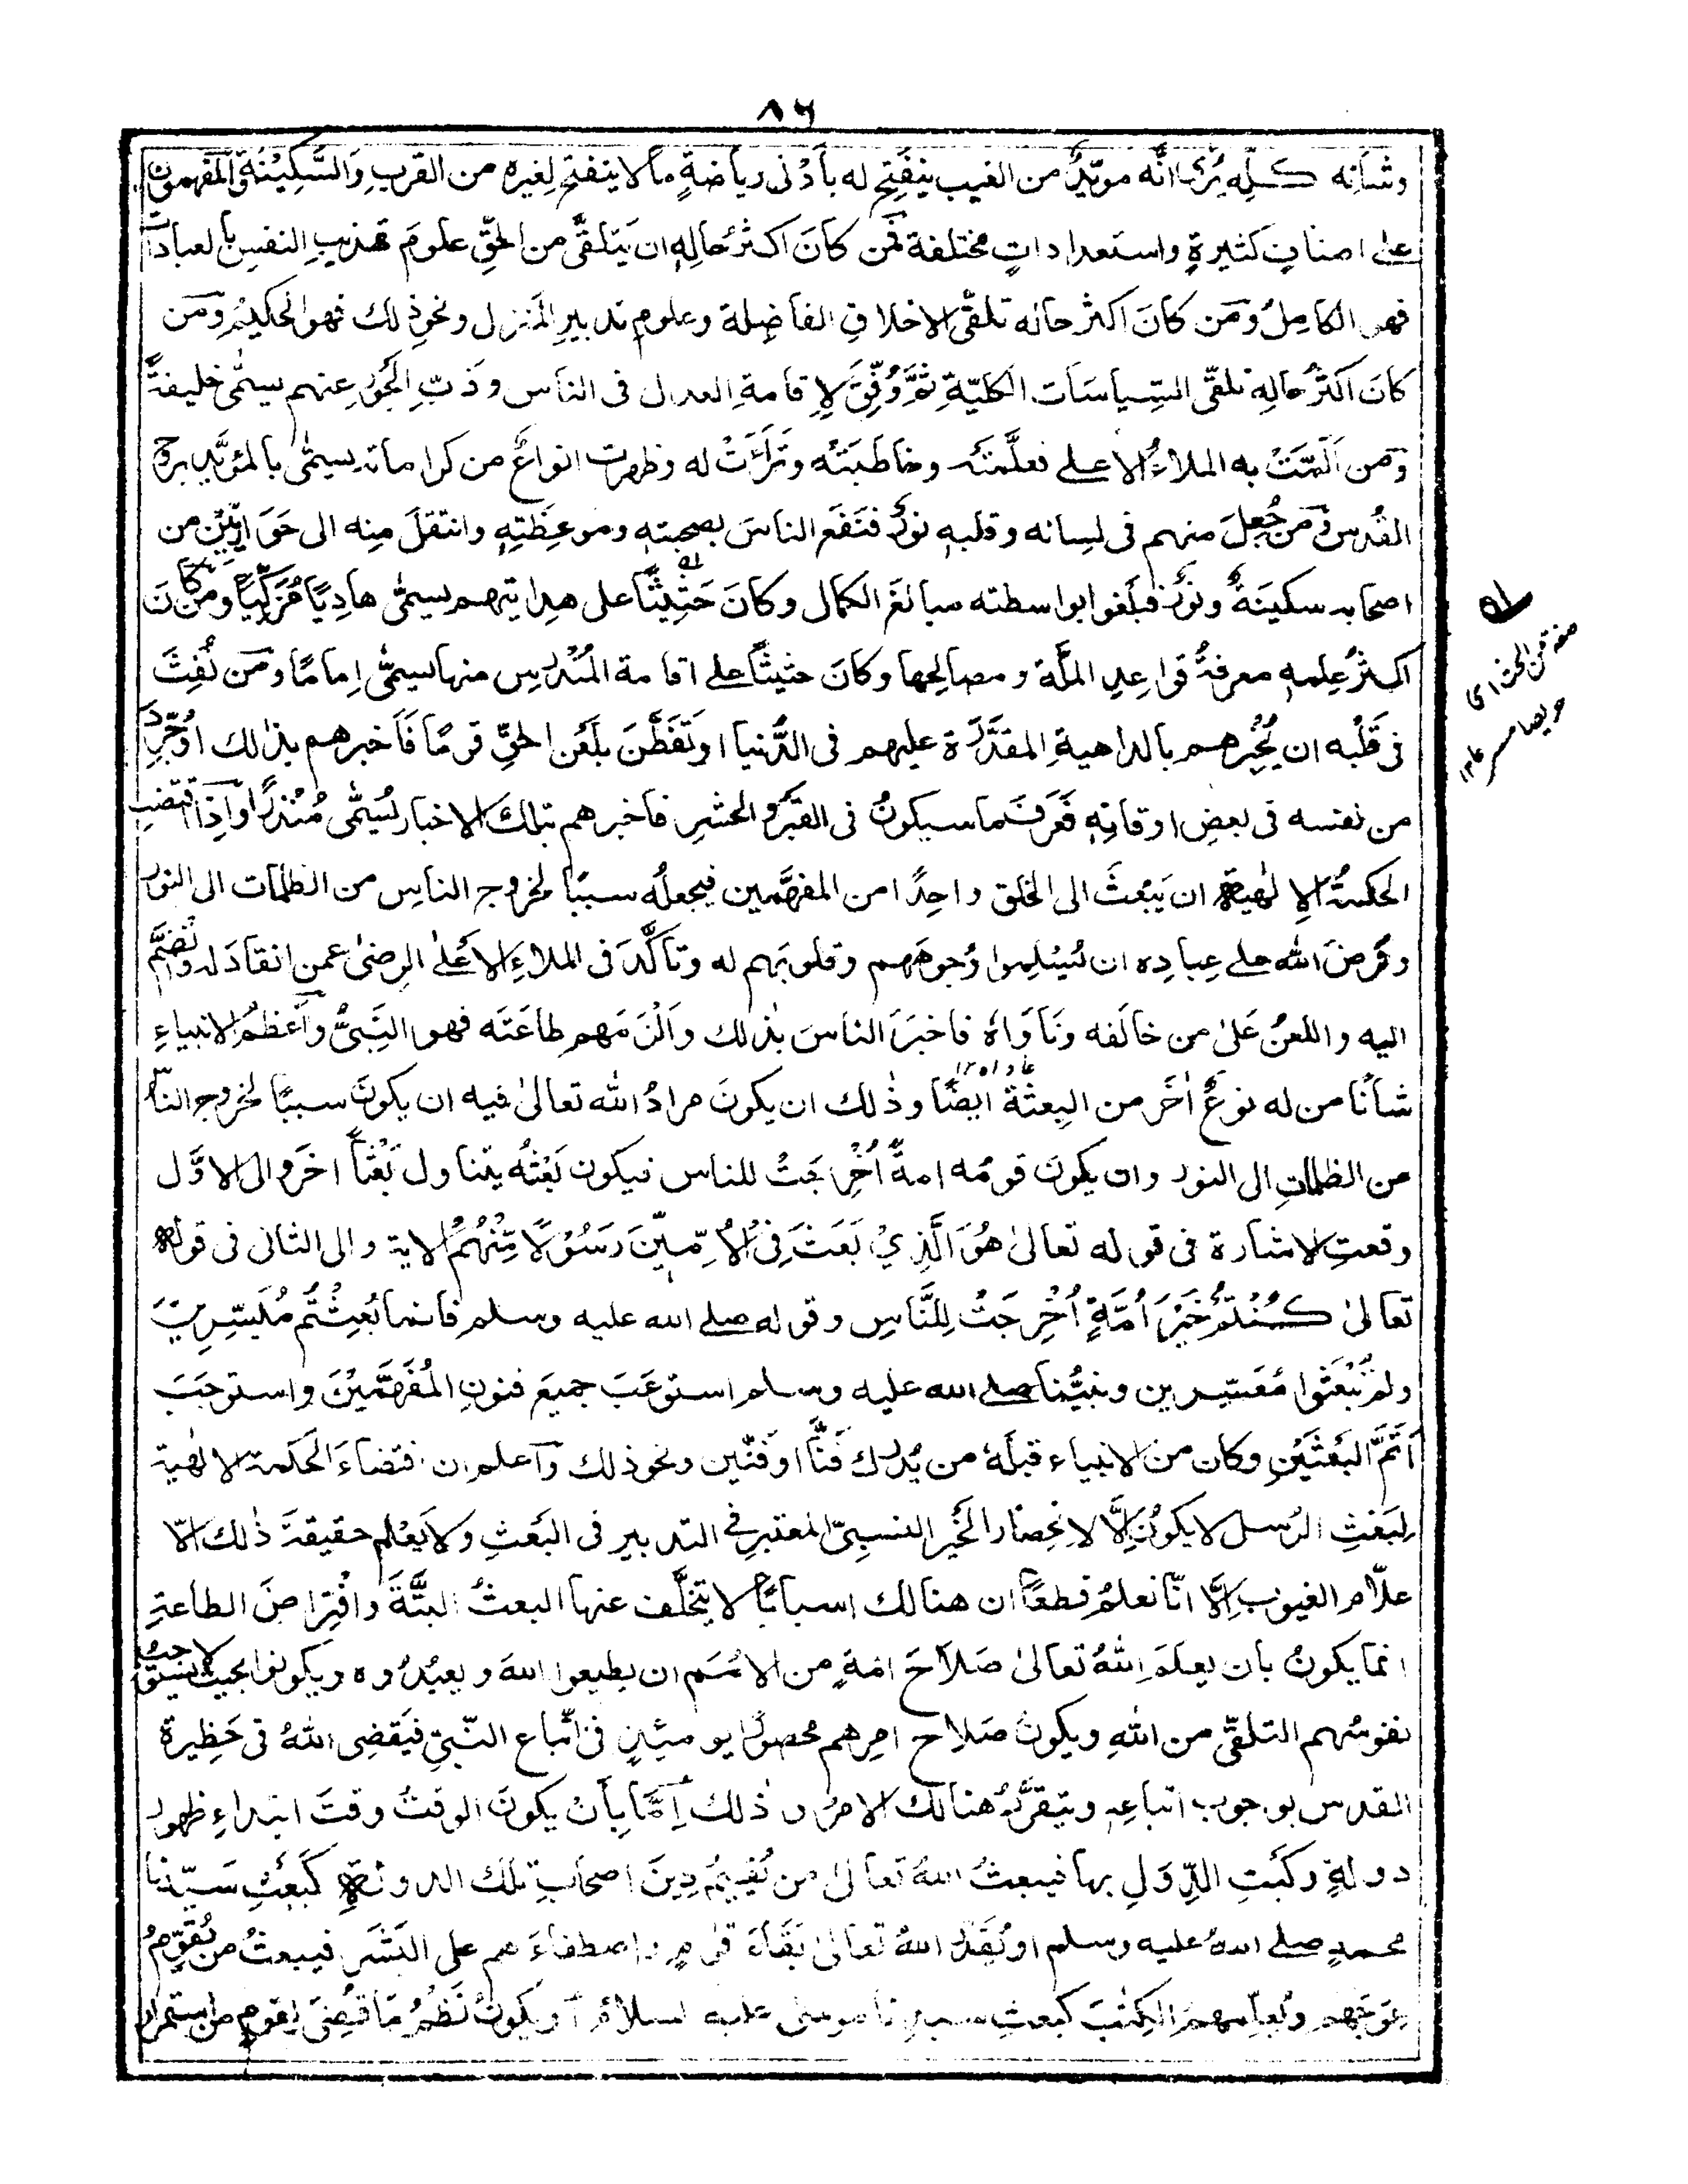 ٨٦
وشأنه كلِّه يُرٰى انَّه مويَّدٌ من الغيب ينفَتِح له بأَدْنٰى رياضةٍ مألا ينفتح لِغيره من القربِ وَالسَّكِيْنَةِ والمَفهمون
على اصنافٍ كثيرةٍ واستعداداتٍ مختلفة فمَن كانَ اكثرُ حالِهٖ ان يَتلقّٰى من الحقِّ علومَ تهذيبِ النفسِ بالعبادات
فهو الكامِلُ ومَن كانَ اكثر حاله تلقّى الاخلاقِ الفاضِلة وعلومِ تدبيرِ المَنزل ونحوِ ذٰلك فهو الحكيمُ ومَن
كانَ اكثرُ حالِه تلقّى السِّياسَات الكليّةِ ثُمَّ وُفِّقَ لِاِقامةِ العدل فى الناس وذَبِّ الجَوْرِ عنهم يسمّٰى خليفةً
ومَن اَلَمَّتْ به الملاءُ الاعلے فعلَّمَتْه وخاطَبَتْه وتَرَاءَتْ له وظهرت انواعٌ من كراماته يسمّٰى بالمئويَّد بروح
القُدس ومَن جُعِلَ منهم فى لسانه وقلبهٖ نورٌ فنَفَع الناسَ بصحبتهٖ وموعِظَتِهٖ وانتقلَ مِنه الى حَوَارِيِّيْن من
اصحابه سكينَةٌ ونورٌ فبلَغوا بواسطته مبالغَ الكمال وكانَ حَثِيْثًا على هِدايتِهم يسمّٰى هادِيًا مُزَكِّيًا ومَن كانَ
اكثرُ عِلمهٖ معرفةُ قواعِدِ المِلَّة ومصالِحِها وكانَ حثيثًا علے اقامة المُنْدَرِس منها يسمّٰى اِمامًا ومَن نُفِثَ
فى قَلْبه ان يُخْبِرهم بالداهيةِ المقدَّرَة عليهم فى الدُّنيا او تَفَطَّنَ بلَعْن الحقِّ قومًا فَاَخبرهم بذٰلك اوجُرِّدَ
من نفسه فى بعضِ اوقاتِهٖ فَعَرفَ ما سيكونُ فى القَبْرِ والحشرِ فاخبرهم بتلكَ الاخبار يُسَمّٰى مُنْذِرًا وَاِذَا اقتضتِ
الحكمةُ الاِلٰهيةُ ان يَبْعثَ الى الخلق واحِدًا من المفهَّمين فيجعلُه سببًا لخروج الناسِ من الظلمات الى النور
وفَرضَ اللّٰه علے عِبادِه ان يُسْلِموا وُجوهَهم وقلوبَهم له وتأكَّدَ فى الملاءِ الاَعْلٰے الرِضىٰ عمن انقادَ له وانْضَمَّ
اليه واللعنُ عَلىٰ من خالَفه ونَاوَاهُ فاخبَرَ الناسَ بذٰلك واَلْزَمَهم طاعَتَه فهو النَبِىُّ وَاَعْظمُ الانبياءِ
شأنًا من له نوعٌ اٰخَر من البِعثة ايضًا وذٰلك ان يكونَ مرادُ اللّٰه تعالىٰ فيه ان يكونَ سببًا لخروج الناس
من الظلماتِ الى النور وان يكونَ قومُه امةً اُخْرِجَتْ للناس فيكون بَعْثُه يتناول بَعْثًا اٰخَر والى الاوَّل
وقعتِ الاشارة فى قوله تعالىٰ هُوَ الَّذِيْ بَعَثَ فِى الْاُمِّيِّيْنَ رَسُوْلًا مِّنْهُمْ الاية والى الثانى فى قوله
تعالىٰ كُنْتُمْ خَيْرَ اُمَّةٍ اُخْرِجَتْ لِلنَّاسِ وقوله صلے الله عليه وسلم فانما بُعِثْتُمْ مُيَسِّرِيْنَ
ولمْ تُبْعَثُوا مُعَسِّرين ونبيُّنا صلے الله عليه وسلم استوعَبَ جميعَ فنونِ المُفَهَّمِيْنَ واستوجَبَ
اَتَمَّ البَعْثَيْنِ وكان من الانبياء قبلَهٗ من يُدرك فَنًّا او فَنَّين ونحو ذلك وَاعلم ان اقتضاءَ الحكمة الالٰهية
لِبَعْثِ الرُسل لا يكونُ اِلَّا لانحِصار الخَيْر النسبىّ المعتبر فى التدبير فى البَعثِ ولا يَعْلم حقيقةَ ذٰلك الّا
علّام الغيوب اِلَّا انّا نعلمُ قطعًا ان هنالك اسبابًا لا يتخلَّف عنها البعثُ البتَّةَ وافْتِراضَ الطاعةِ
انما يكونُ بأن يعلمَ اللّٰهُ تعالىٰ صَلَاحَ امةٍ من الامَم ان يطيعوا اللهَ ويعبُدُوه ويكونوا بحيث لا يستوجبُ
نفوسُهم التلقّى من اللّٰهِ ويكونُ صَلاح امرِهم محصورًا يومئِذٍ فى اتّباع النّبىّ فيَقضِى اللّٰهُ فى حَظِيرة
القدس بوجوب اتباعهٖ ويتقرَّرُ هنالك الامرُ و ذٰلك اِمَّا بِأَنْ يكونَ الوقتُ وقتَ ابتداءِ ظهور
دولةٍ وكَبْتِ الدِّوَلِ بها فيبعثُ اللهُ تعالىٰ من يُقيمُ دِينَ اصحابِ تلك الدولةِ كبَعْثِ سَيِّدنا
محمدٍ صلے اللهُ عليه وسلم او يُقَدِّرَ اللهُ تعالىٰ بَقَاءَ قومٍ واصطفاءَهم على البَشَرِ فيبعثُ من يُقَوِّمُ
عِوَجَهم ويُعلِّمهم الكِتٰبَ كبعثِ سيدنا موسٰى عليه السلام اَو يكونُ نَظْمُ مَا قُضِىَ لِقومٍ من استمرار